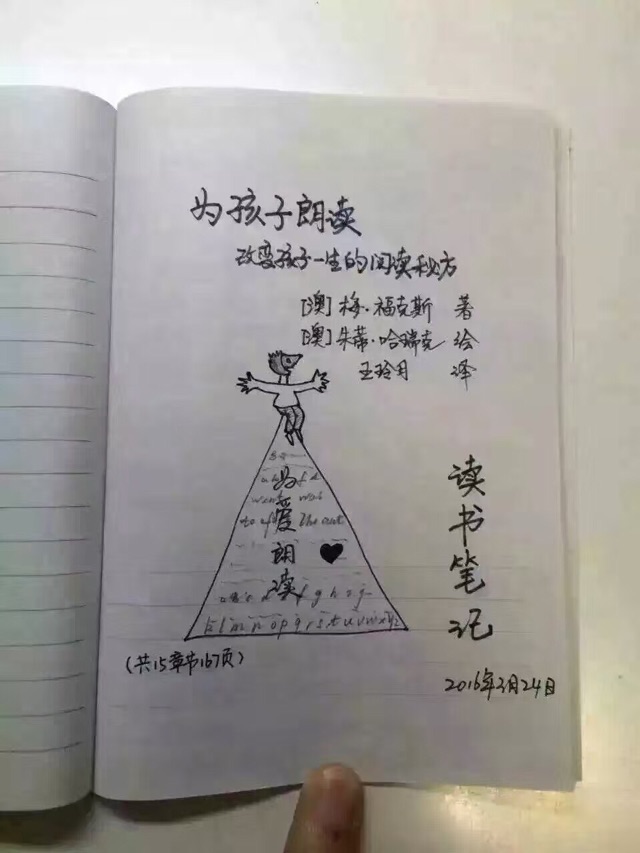 为孩子朗读
改变孩子一生的阅读秘方
[澳] 梅·福克斯 著
[澳] 朱蒂·哈瑞克 绘
王玲月 译
为
爱
朗
读
f g h i j
k l m n o p q r s t u v w x y z
读
书
笔
记
(共15章节167页)
2016年3月24日